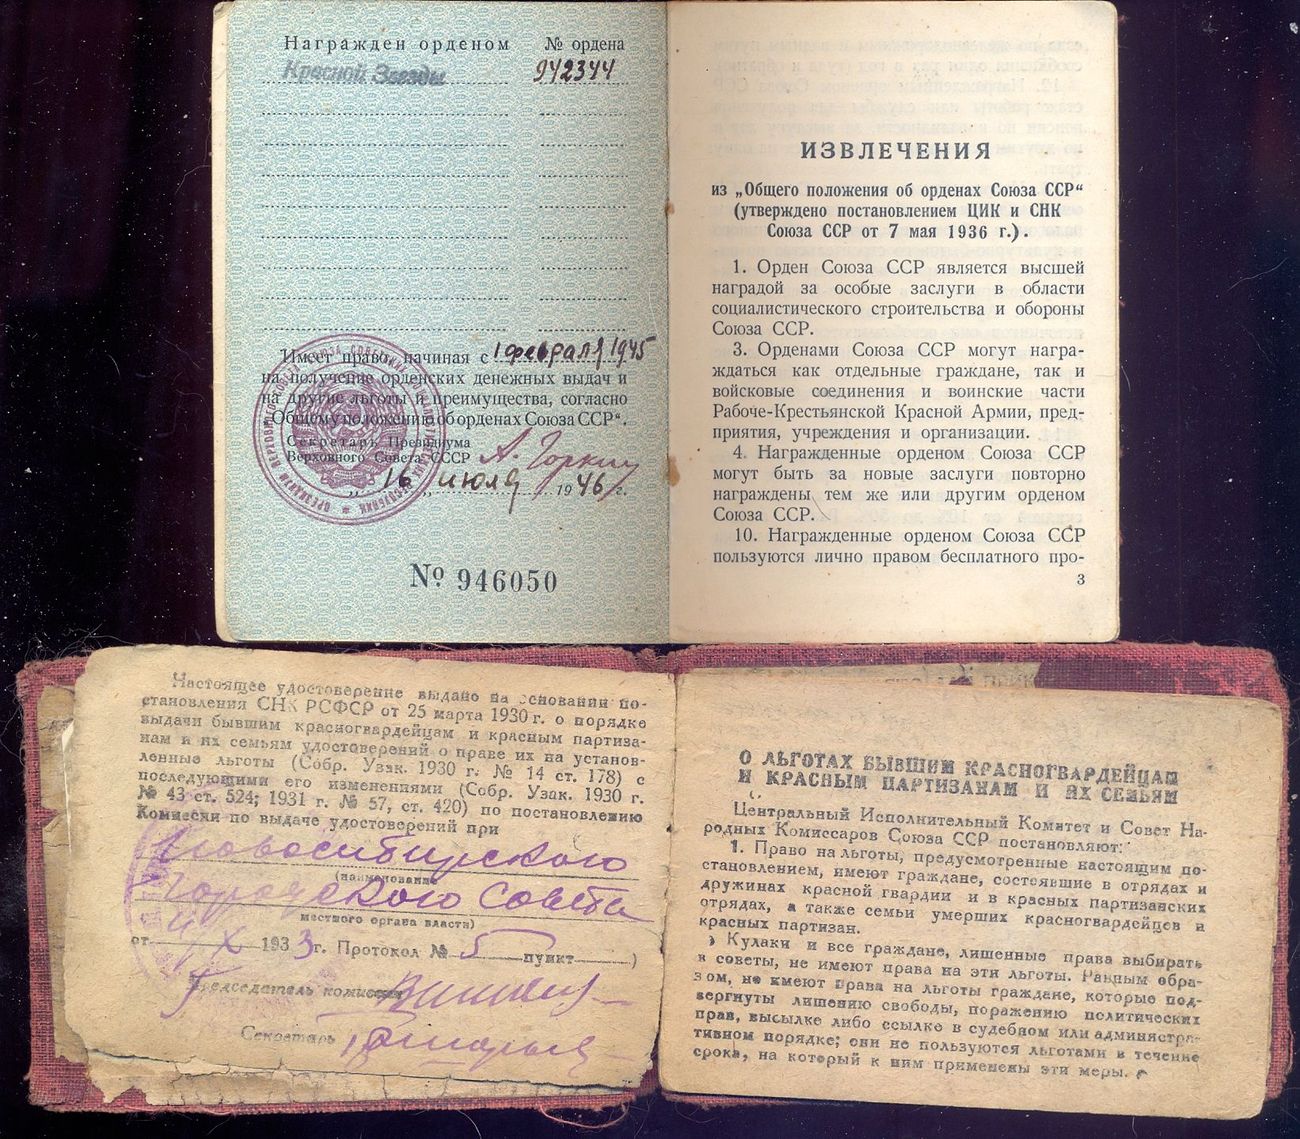 Награжден орденом № ордена
Красной Звезды 942344
Имеет право, начиная с 1 февраля 1945
на получение орденских денежных выдач и
на другие льготы и преимущества, согласно
„Общему положению об орденах Союза ССР“.
Секретарь Президиума
Верховного Совета СССР А. Горкин
„16„ июля 1946 г.
№ 946050
ИЗВЛЕЧЕНИЯ
из „Общего положения об орденах Союза ССР“
(утверждено постановлением ЦИК и СНК
Союза ССР от 7 мая 1936 г.).
1. Орден Союза ССР является высшей
наградой за особые заслуги в области
социалистического строительства и обороны
Союза ССР.
3. Орденами Союза ССР могут награ-
ждаться как отдельные граждане, так и
войсковые соединения и воинские части
Рабоче-Крестьянской Красной Армии, пред-
приятия, учреждения и организации.
4. Награжденные орденом Союза ССР
могут быть за новые заслуги повторно
награждены тем же или другим орденом
Союза ССР.
10. Награжденные орденом Союза ССР
пользуются лично правом бесплатного про-
3
Настоящее удостоверение выдано на основании по-
становления СНК РСФСР от 25 марта 1930 г. о порядке
выдачи бывшим красногвардейцам и красным партиза-
нам и их семьям удостоверений о праве их на установ-
ленные льготы (Собр. Узак. 1930 г. № 14 ст. 178) с
последующими его изменениями (Собр. Узак. 1930 г.
№ 43 ст. 524; 1931 г. № 57, ст. 420) по постановлению
Комиссии по выдаче удостоверений при
Новосибирского
(наименование
городского совета
местного органа власти)
от X 1933 г. Протокол № 5 пункт )
Председатель комиссии
Секретарь
О ЛЬГОТАХ БЫВШИМ КРАСНОГВАРДЕЙЦАМ
И КРАСНЫМ ПАРТИЗАНАМ И ИХ СЕМЬЯМ
Центральный Исполнительный Комитет и Совет На-
родных Комиссаров Союза ССР постановляют:
1. Право на льготы, предусмотренные настоящим по-
становлением, имеют граждане, состоявшие в отрядах и
дружинах красной гвардии и в красных партизанских
отрядах, а также семьи умерших красногвардейцев и
красных партизан.
Кулаки и все граждане, лишенные права выбирать
в советы, не имеют права на эти льготы. Равным обра-
зом, не имеют права на льготы граждане, которые под-
вергнуты лишению свободы, поражению политических
прав, высылке либо ссылке в судебном или администра-
тивном порядке; они не пользуются льготами в течение
срока, на который к ним применены эти меры.